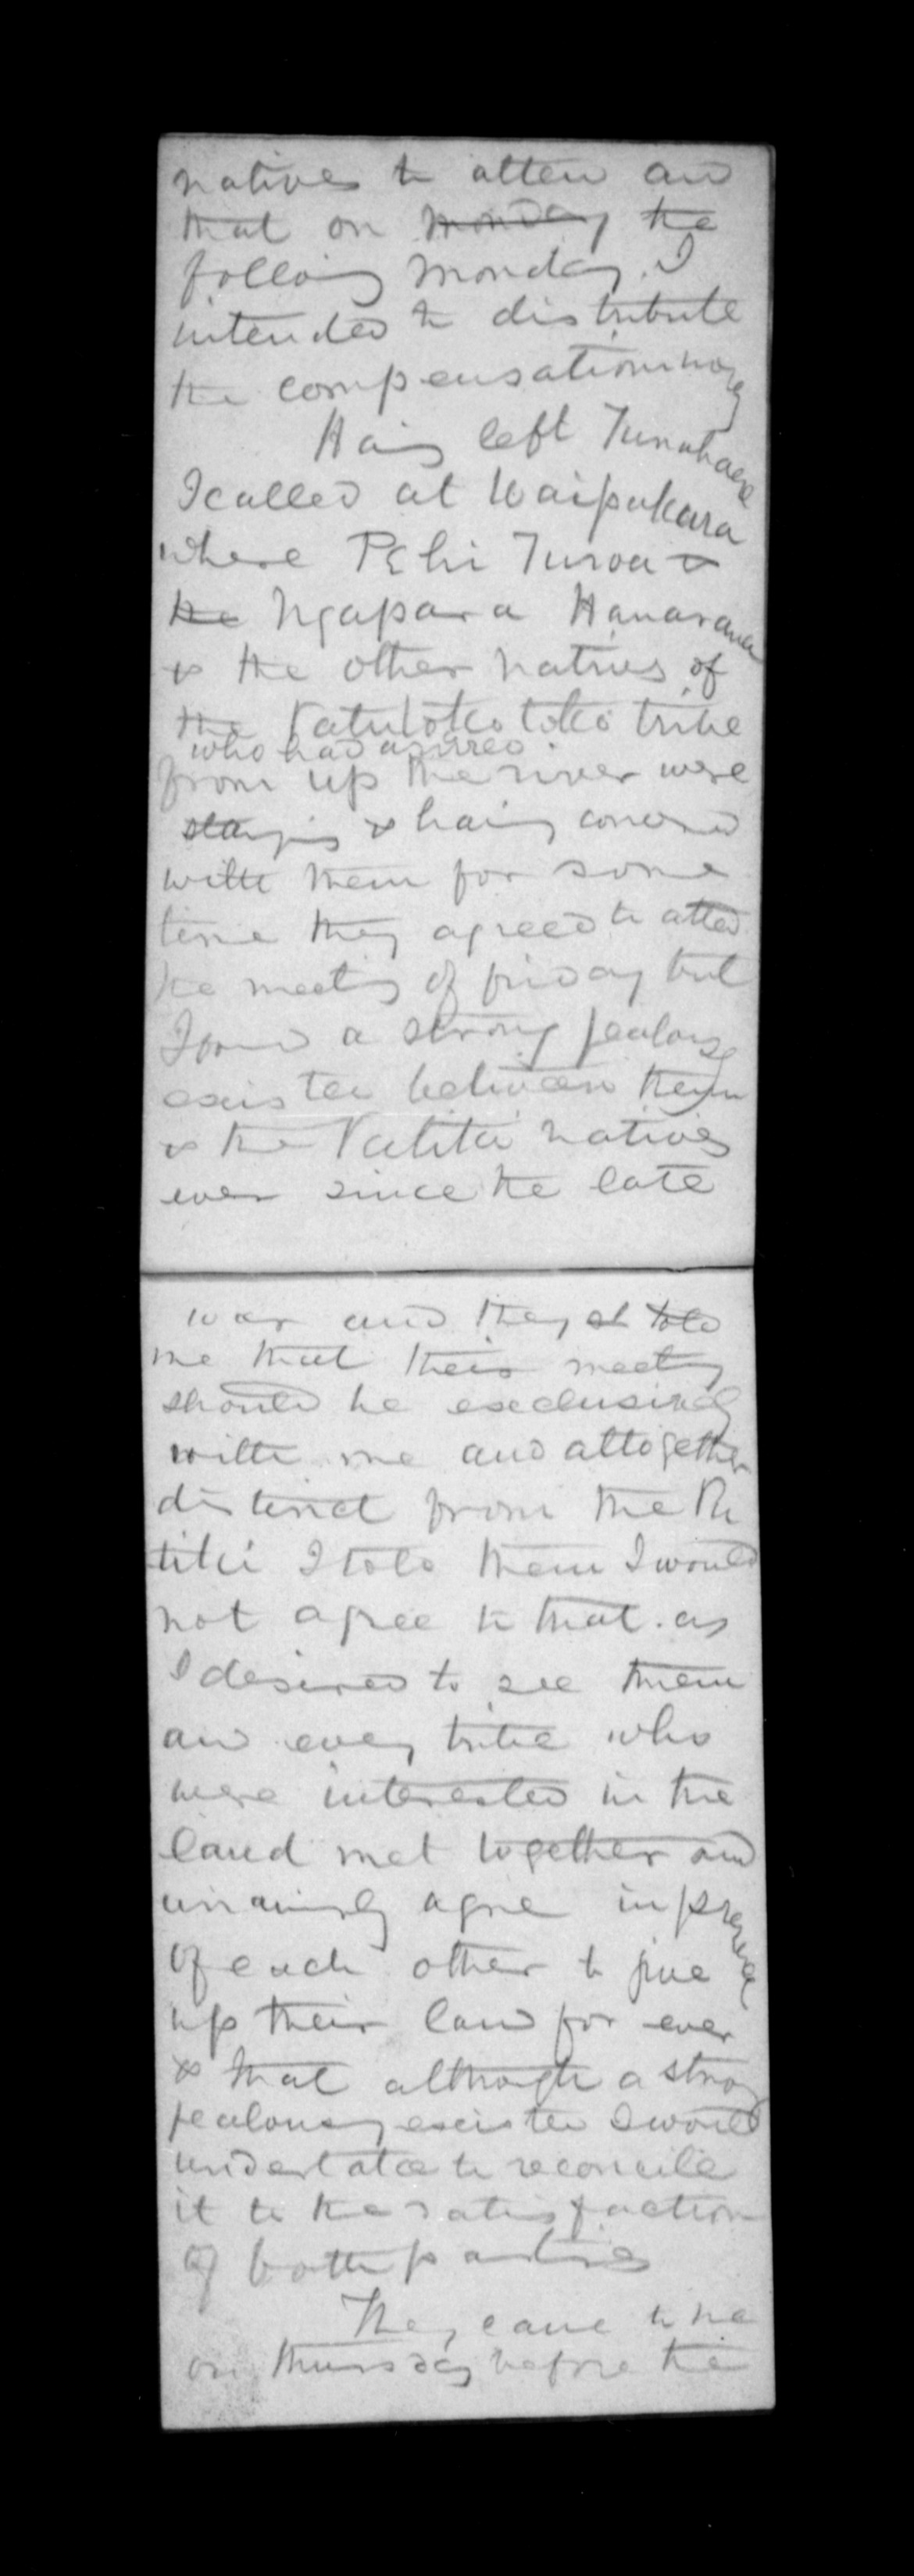 natives to atten and
that on monday the
folloing monday. I
intended to distribute
the compensation money
Haing left Tunuhaere
I called at Waipakura
where Pehi Turoa &
the Ngapara
& the other natives of
the Patutokotoko tribe
who had arrived
from up the river were
staying & haing conversed
with them for some
time they agreed to attend
the meeting of friday but
I found a strong jealousy
existed between them
& the Putiki natives
ever since the late
war and they told
me that their meeting
should be exclusively
with me and altogether
distinct from the Pu
tiki I told them I would
not agree to that. as
I desired to see them
and every tribe who
were interested in the
land met together and
agree in presence
of each other to give
up their land for ever
& that although a strong
jealousy existed I would
undertake to reconcile
it to the satisfaction
of both parties
They came to me
on thursday before the